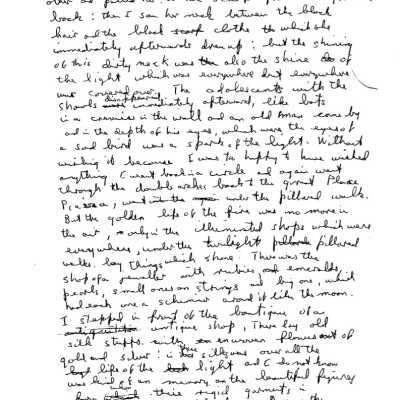 back: then I saw her neck between the black
hair and the black scarf clothe which she
immediately afterwards drew up: but the shining
of this dirty neck was also the shine of
the light which was everywhere but everywhere
was covered over. The adolescents with the
shawls disappearing immediately afterward, like bats
in a crannies in the wall and an old man came by
and in the depth of his eyes, which were the eyes of
a sad bird was a spark of the light. Without
wishing it because I was too happy to have wished
anything I went back in a circle and again went
through the double arches back to the great Place
Piazza, went under the pillared walk.
But the golden life of the fire was no more in
the air, only in the illuminated shops which were
everywhere, under the twilight pillared
walks. lay things which shone. There was the
shop of a jeweller with rubies and emeralds,
pearls, small ones on strings and big ones, which
had each one a schimmer around it like the moon.
I stepped in front of the boutique of a
antique shop, There lay old
silk stuffs with woven flowers of
gold and silver: over all the
life of the light and I do not know
was kind of memory the beautiful figures
these rigid garments in